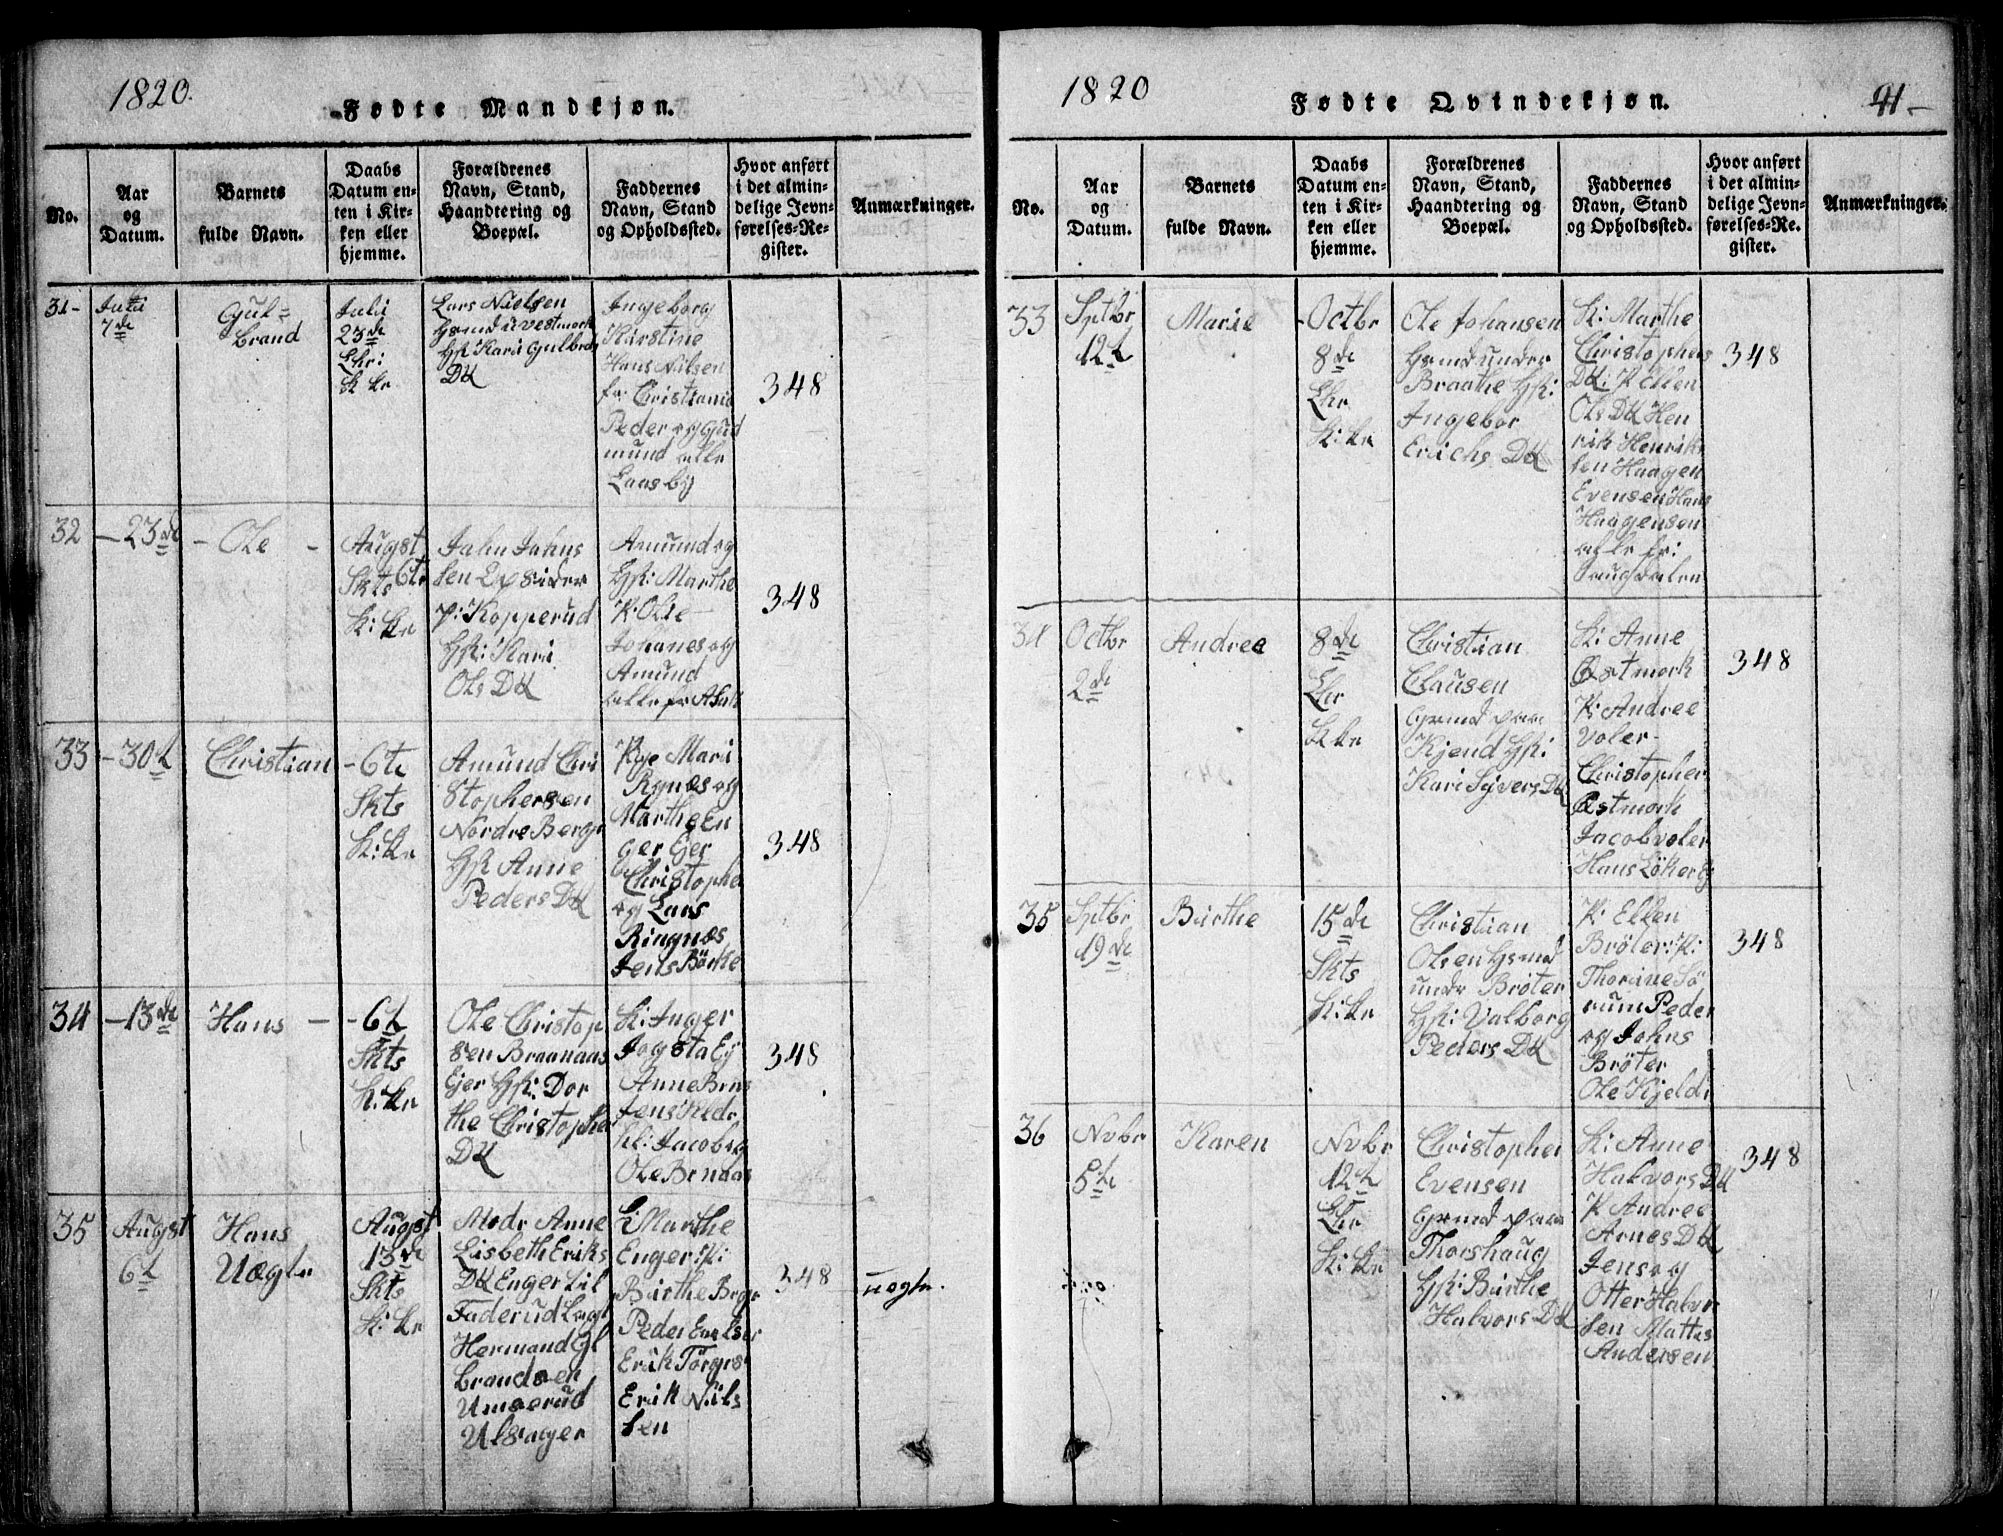 1820.
Fødte Mandkjøn.
No.
Aar
og
Datum.
Barnets
fulde Navn.
Daabs
Datum en-
ten i Kir-
ken eller
hjemme.
Forældrenes
Navn, Stand,
Haandtering og
Boepæl.
Faddernes
Navn, Stand
og Opholdssted.
Hvor anført
i det almin-
delige Jevn-
førelses-Re-
gister.
Anmærkninger.
31-
Juli
7de
Gul-
brand
Juli
23de
Chr:
K:ke
Lars Nielsen
Hsmd u Vestmork
Hst Kari Gulbr
DK
Ingeborg
Kirstine
Hans Nilsen
fr: Christiania
Peder og Gud
mund alle
Laasby
348
32
- 23de
- Ole -
Augst
6te
Skts
K:ke
John Johns
sen Opsider
p: Kopperud
Hst: Kari
Ols DK
Amund og
Hst: Marthe
P: Olie
Johanes og
Amund
alle fr
348
33
- 30t
Christian
- 6te
Skts
K:ke
Amund Chri
stophersen
Nordre Berg
Hst Anne
Peders DK
Pige Mari
Rynæs og
Marthe En
ger Ejer
Christopher
og Lars
Ringnæs
Jens Börke
348
34
- 13de
Hans -
- 6t
Skts
K:ke
Ole Christop
sen Braanaas
Ejer Hst: Dor
the Christophe
DK
K: Inger
Jogsta Ej
Anne Brns
Jens
Jacob og
Ole Brnaas
348
35
Augst
6t
Hans
Uægte
Augst
13de
Skts
K:ke
Modr Anne
Lisbeth Eriks
DK Enger til
Faderud Lagt
Hermand Gl
brandsen
Umserud
Ulsager
K Marthe
Enger P:
Birthe Brge
Peder Enelser
Erik Törgrs
Erik Nils
sen
348
uægte.
1820
Fødte Qvindekjøn.
41-
No.
Aar
og
Datum.
Barnets
fulde Navn.
Daabs
Datum en-
ten i Kir-
ken eller
hjemme.
Forældrenes
Navn, Stand,
Haandtering og
Boepæl.
Faddernes
Navn, Stand
og Opholdssted.
Hvor anført
i det almin-
delige Jevn-
førelses-Re-
gister.
Anmærkninger.
33
Sptbr
12t
Marie
- Octbr
8de
Chr
K:ke
Ole Johansen
Hsmd under
Braathe Hst:
Ingebor
Erichs DK
K: Marthe
Christophers
DK: P Ellen
Ols DK Hen
rik Henrik
sen Haagen
Evensen Hans
Haagensen
alle fr:
Saugdalen
348
34
Octbr
2de
Andree
8de
Chr
K.ke
Christian
Clausen
Grmd paa
Kjend Hst:
Kari Syvers DK
K: Anne
Østmork
P: Andree
Voler-
Christopher
Østmork
Jacob Voler
Hans Lökerby
348
35
Sptbr
19de
Birthe
15de
Skts
K:ke
Christian
Olsen Hsmd
undr Bröter
Hst: Valborg
Peders DK
P: Ellen
Bröter: P:
Thorine Sö
rum Peder
og Johns
Bröter
Ole Kjelds
348
36
Nvbr
5te
Karen
Nvbr
12t
Chr
K:ke
Christopher
Evensen
Grmd paa
Thorshaug
Hst: Birthe
Halvors DK
K: Anne
Halvors DK
P Andree
Arnes DK
Jens og
Otter Halvr
sen Mattis
Andersen
348